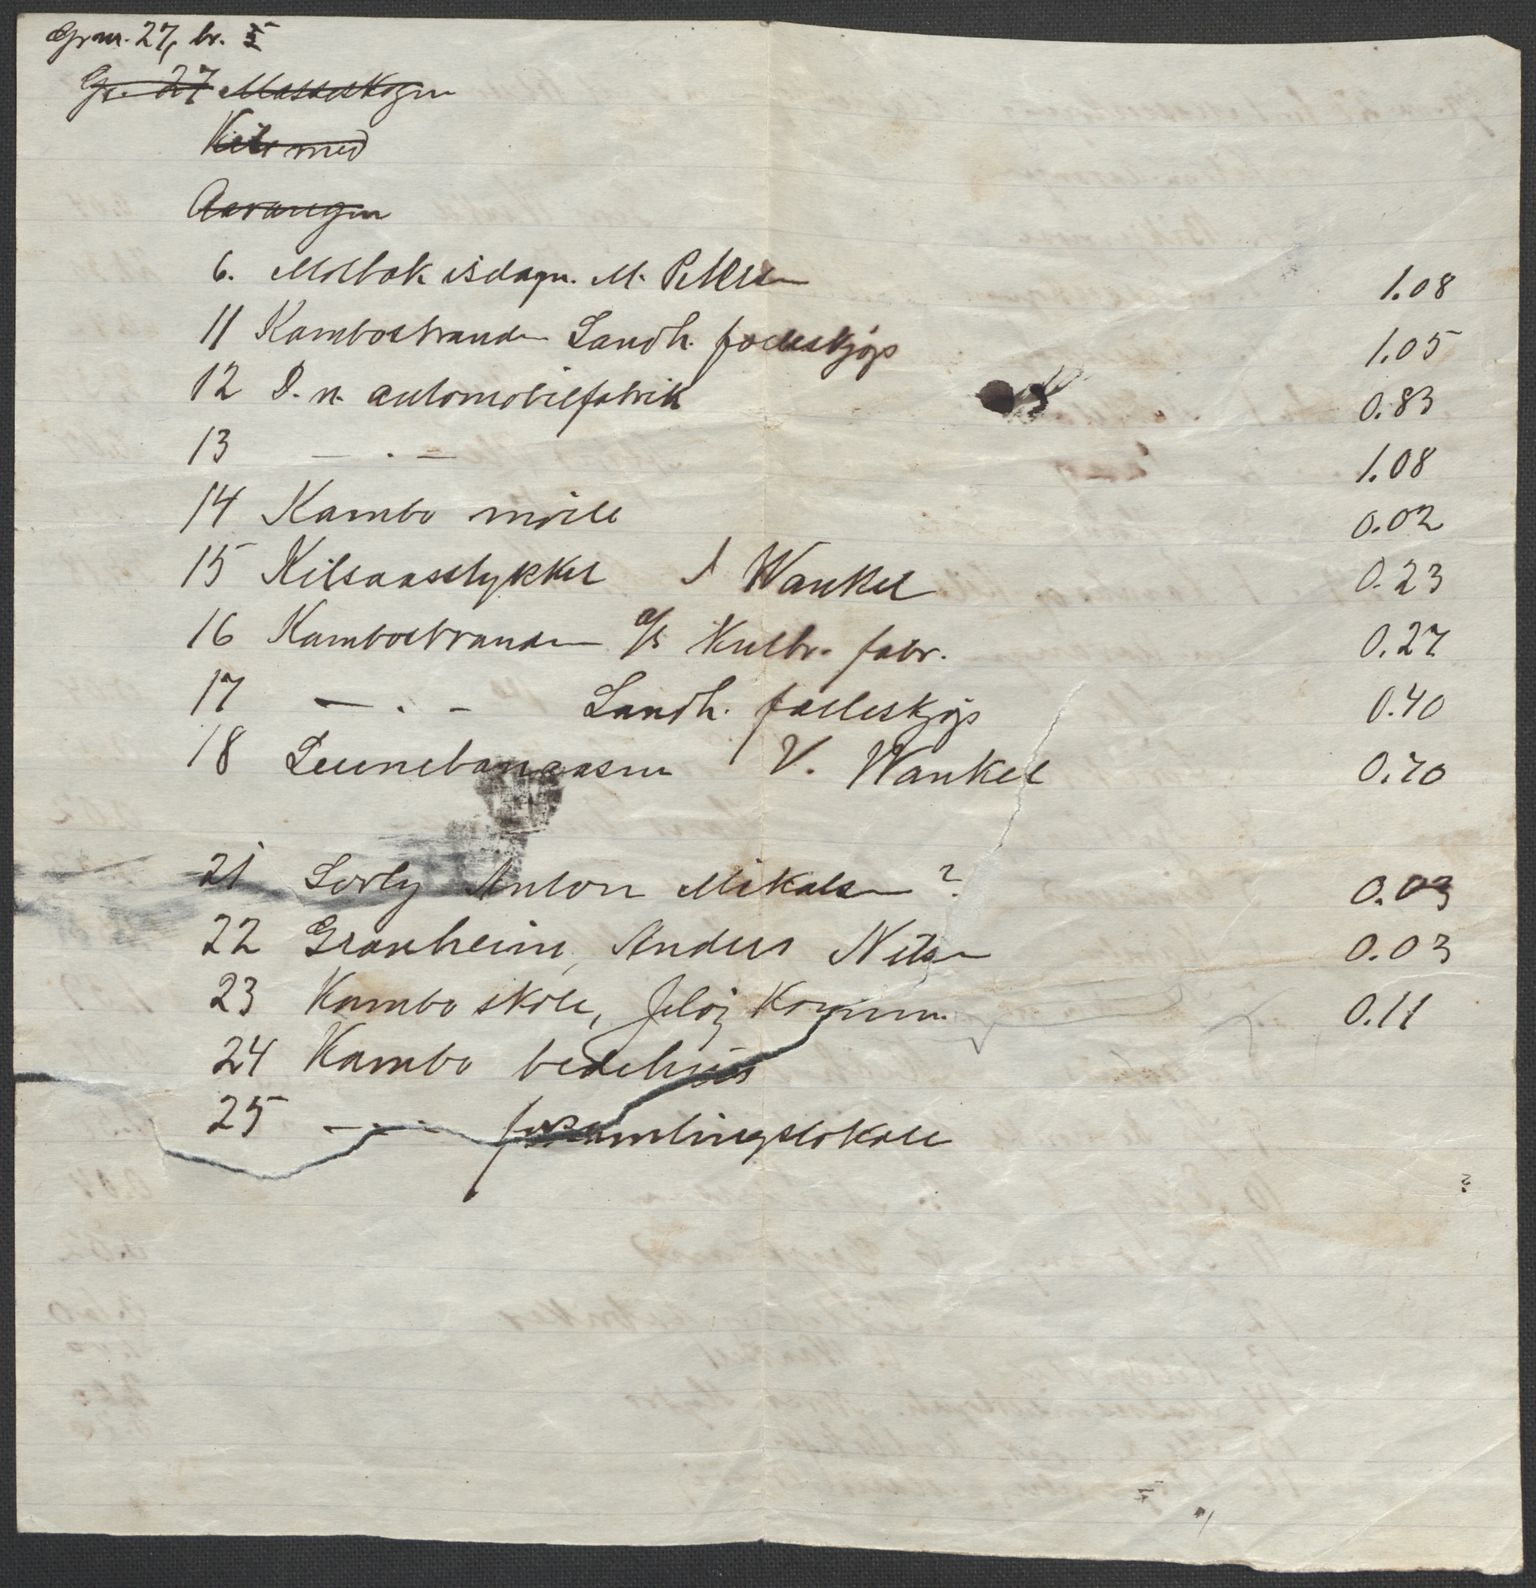 Grnr. 27, br. 5
Gr. 27 Masseskogen
Kihl med
6. Molbæk M. Petersen 1.08
11 Kambostranden Landh. fælleskjøp 1.05
12 D. n. automobilfabrik 0.83
13 — . — 1.08
14 Kambo mølle 0.02
15 Kilsaasstykket J Wankel 0.23
16 Kambostranden a/s Kulbr. fabr. 0.27
17 — . — Landh. fælleskjøp 0.40
18 V. Wankel 0.70
21 Sorly Anton Mikalsen ? 0.03
22 Granheim, Anders Nilsen 0.03
23 Kambo skole, Jeløy Komm. 0.11
24 Kambo bedehus
25 — . — forsamlingslokale